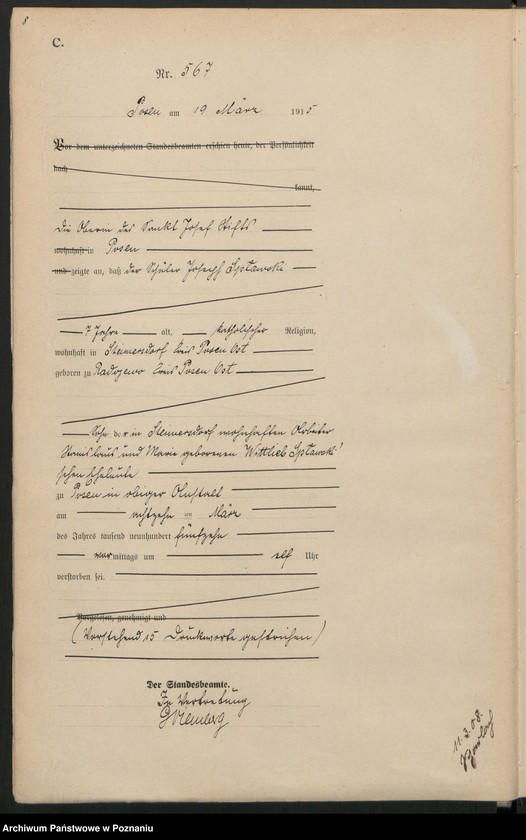 8
C.
Nr. 567
Posen am 19 März 1915
Vor dem unterzeichneten Standesbeamten erschien heute, der Persönlichkeit
nach
kannt,
die Oberin des Sankt Josef Stifts
wohnhaft in Posen
und zeigte an, daß der Schüler Joseph Spławski
7 Jahre alt, katholischer Religion,
wohnhaft in Steinersdorf Kreis Posen Ost
geboren zu Radojewo Kreis Posen Ost
Sohn der in Steinersdorf wohnhaften Arbeiter
Stanislaus und Marie geborenen Wittlieb Spławski'
schen Eheleute
zu Posen in obiger Anstalt
am achtzehn ten März
des Jahres tausend neunhundert fünfzehn
vormittags um elf Uhr
verstorben sei.
Vorgelesen, genehmigt und
(Vorstehend 15 Druckworte gestrichen)
Der Standesbeamte.
In Vertretung
11.3.08.
Archiwum Państwowe w Poznaniu